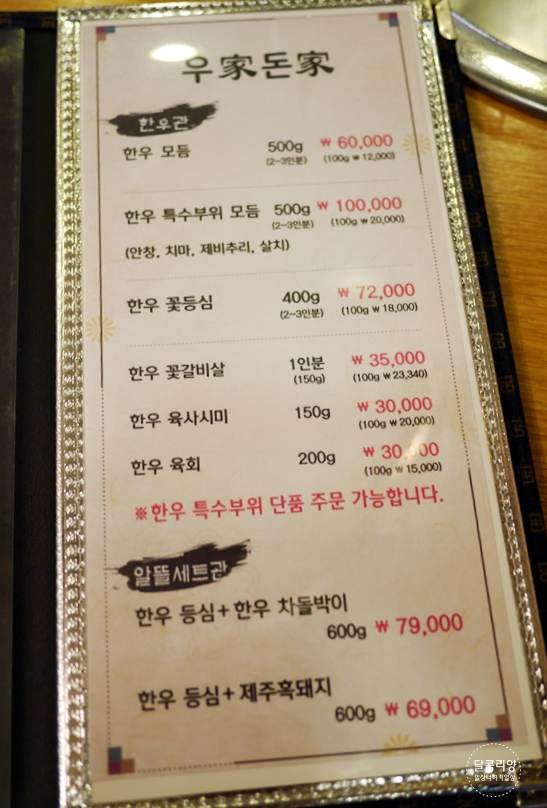 우家돈家
한우관
한우 모듬 500g ₩ 60,000
(2~3인분) (100g ₩ 12,000)
한우 특수부위 모듬 500g ₩ 100,000
(2~3인분) (100g ₩ 20,000)
(안창, 치마, 제비추리, 살치)
한우 꽃등심 400g ₩ 72,000
(2~3인분) (100g ₩ 18,000)
한우 꽃갈비살 1인분 ₩ 35,000
(150g) (100g ₩ 23,340)
한우 육사시미 150g ₩ 30,000
(100g ₩ 20,000)
한우 육회 200g ₩ 30,000
(100g ₩ 15,000)
※한우 특수부위 단품 주문 가능합니다.
알뜰세트관
한우 등심+한우 차돌박이
600g ₩ 79,000
한우 등심+제주흑돼지
600g ₩ 69,000
달콤리앙